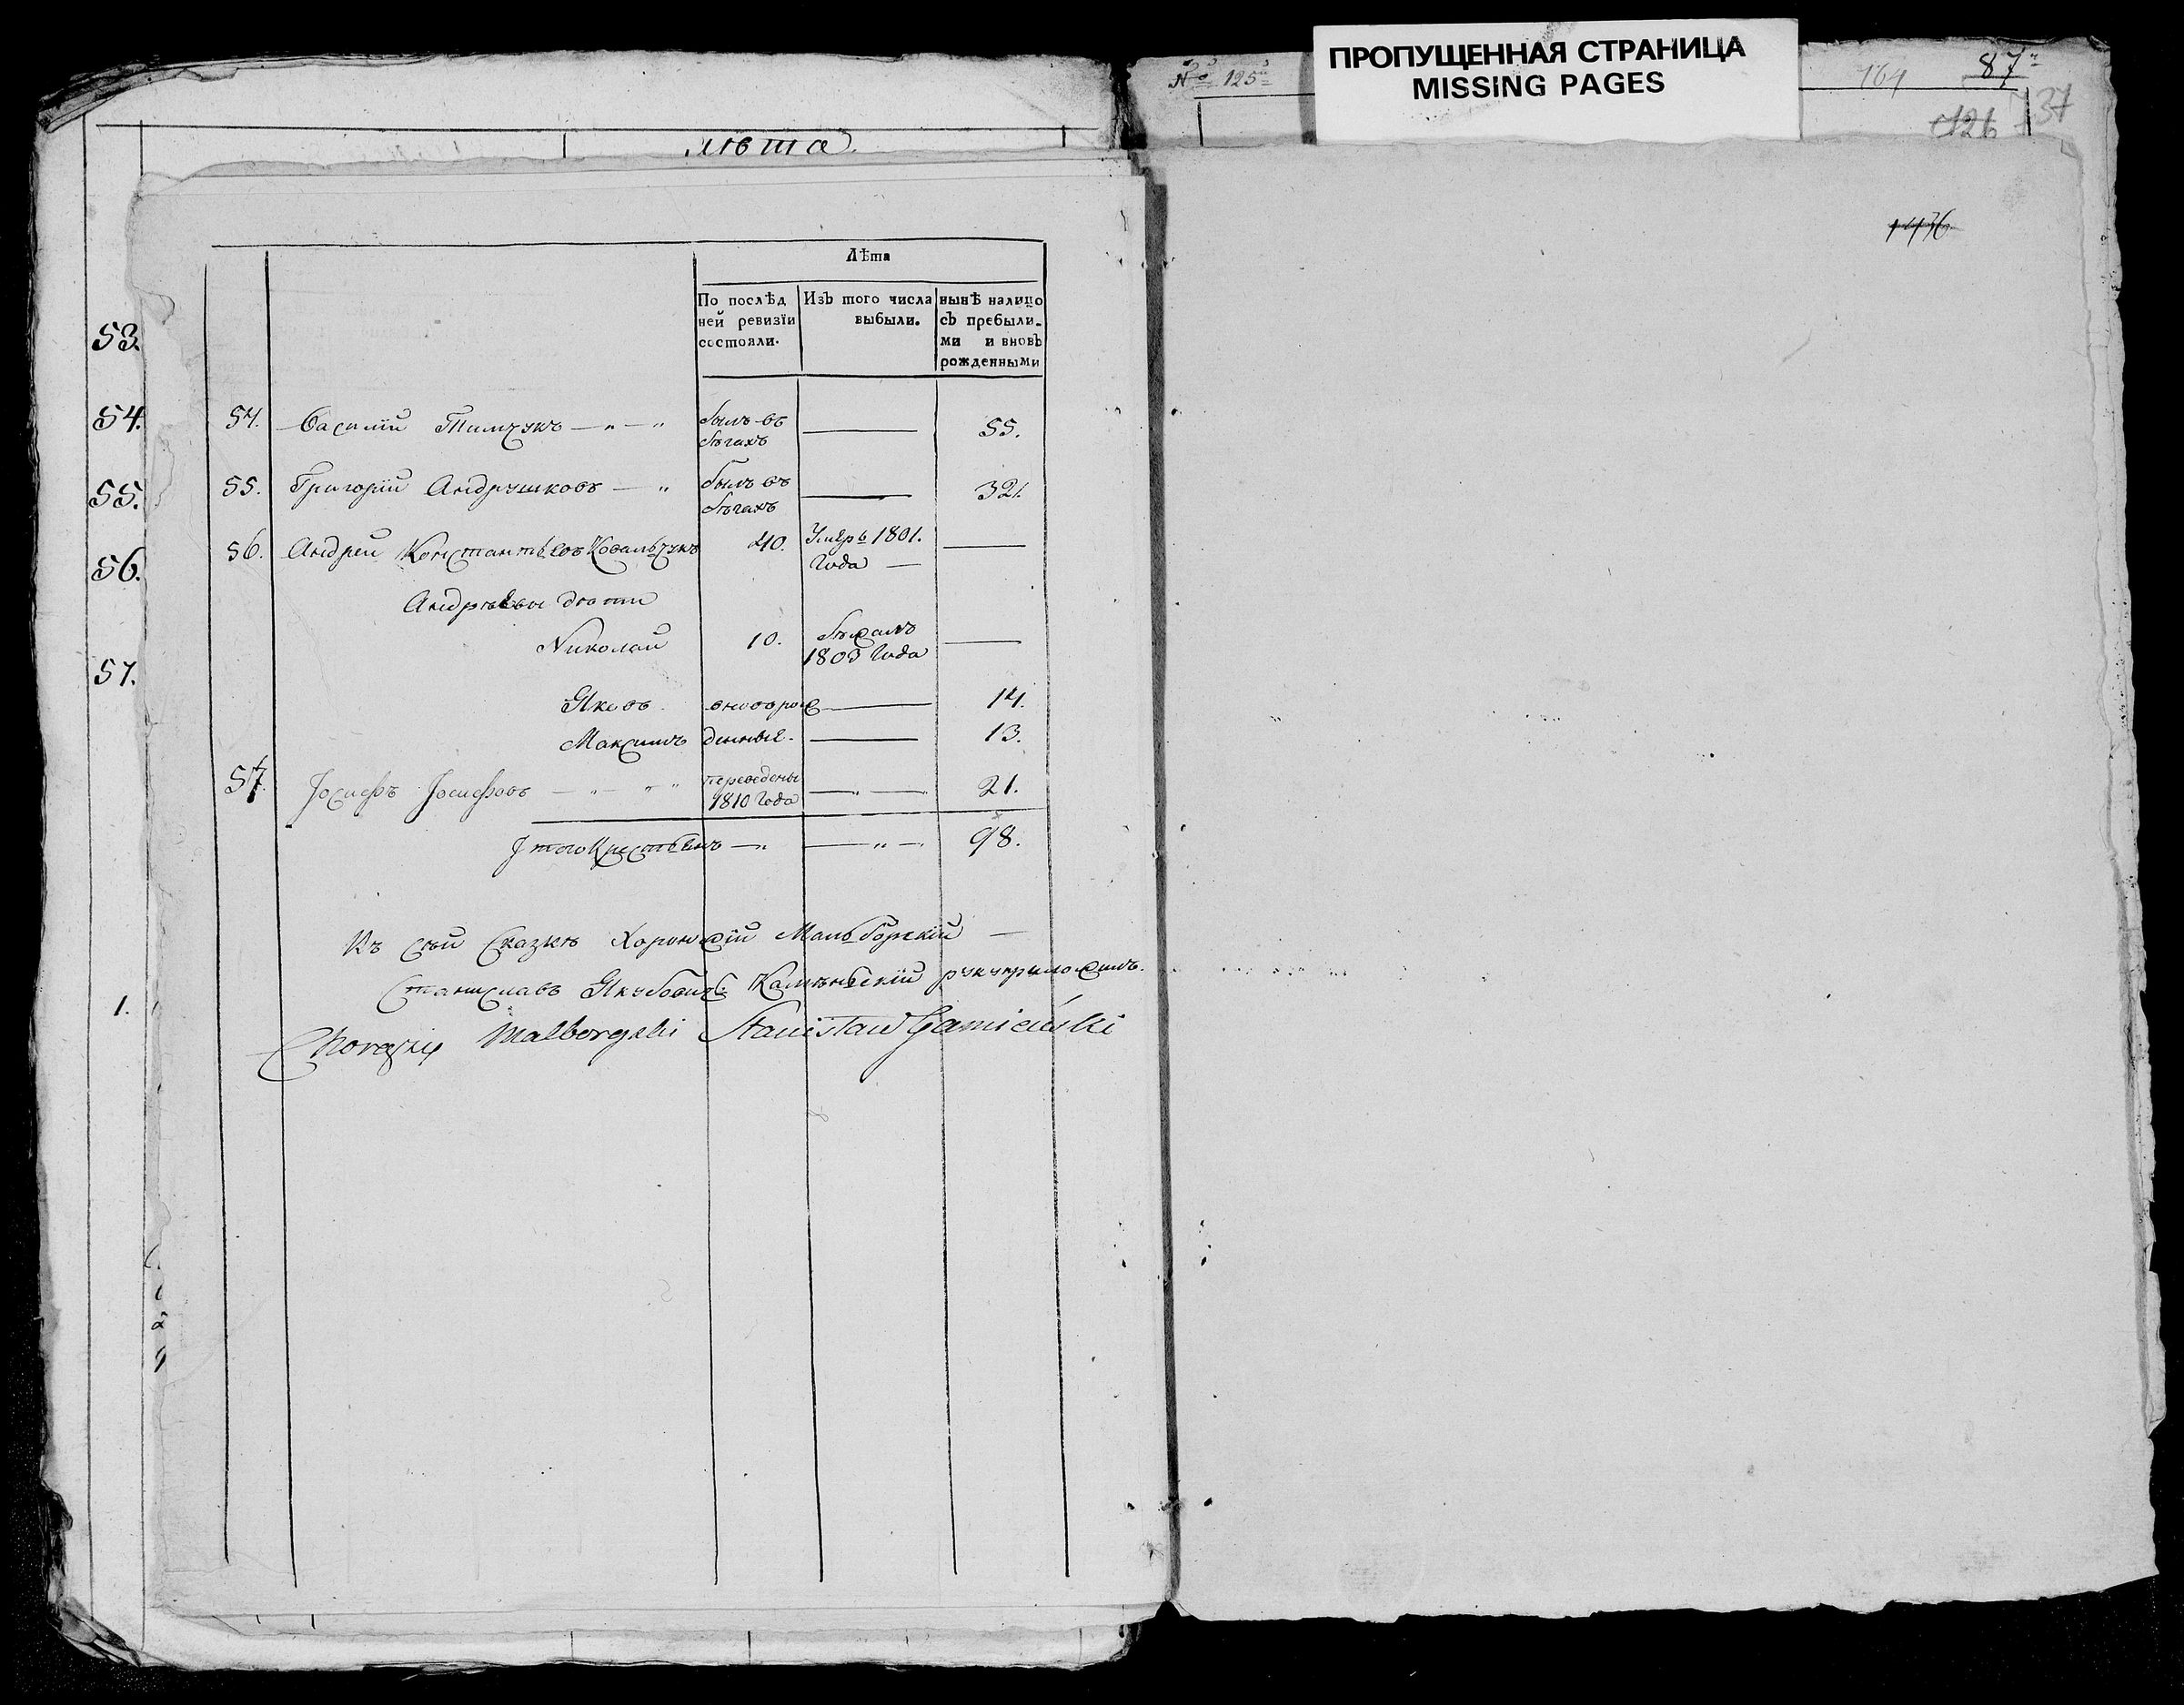 ПРОПУЩЕННАЯ СТРАНИЦА
MISSING PAGES
№ 125
164
87
126
37
1436
лѣта
53.
54.
55.
56.
57.
1.
Лѣта
По послѣд ней ревизїи состояли.
Изъ того числа выбыли.
нынѣ налицо съ пребыли- ми и вновь рожденными
54. Василій Тимчукъ былъ въ бѣгахъ 55.
55. Григорій Андрушковъ былъ въ бѣгахъ 32.
56. Андрей Константьевъ Ковальчукъ 40. Умеръ 1801. года
Андрѣевы дѣти
Николай 10. бѣжалъ 1803 года
Яковъ вновърож 14.
Максимъ денные. 13.
57. Іосифъ Іосифовъ переведены 1810 года 21.
Итого крестьянъ 98.
Къ сей сказкѣ Хорунжій Мальборскій
Станиславъ Якубовичъ Камѣньскій руку приложилъ.
Chorąży Malborgski Stanisław Kamieński